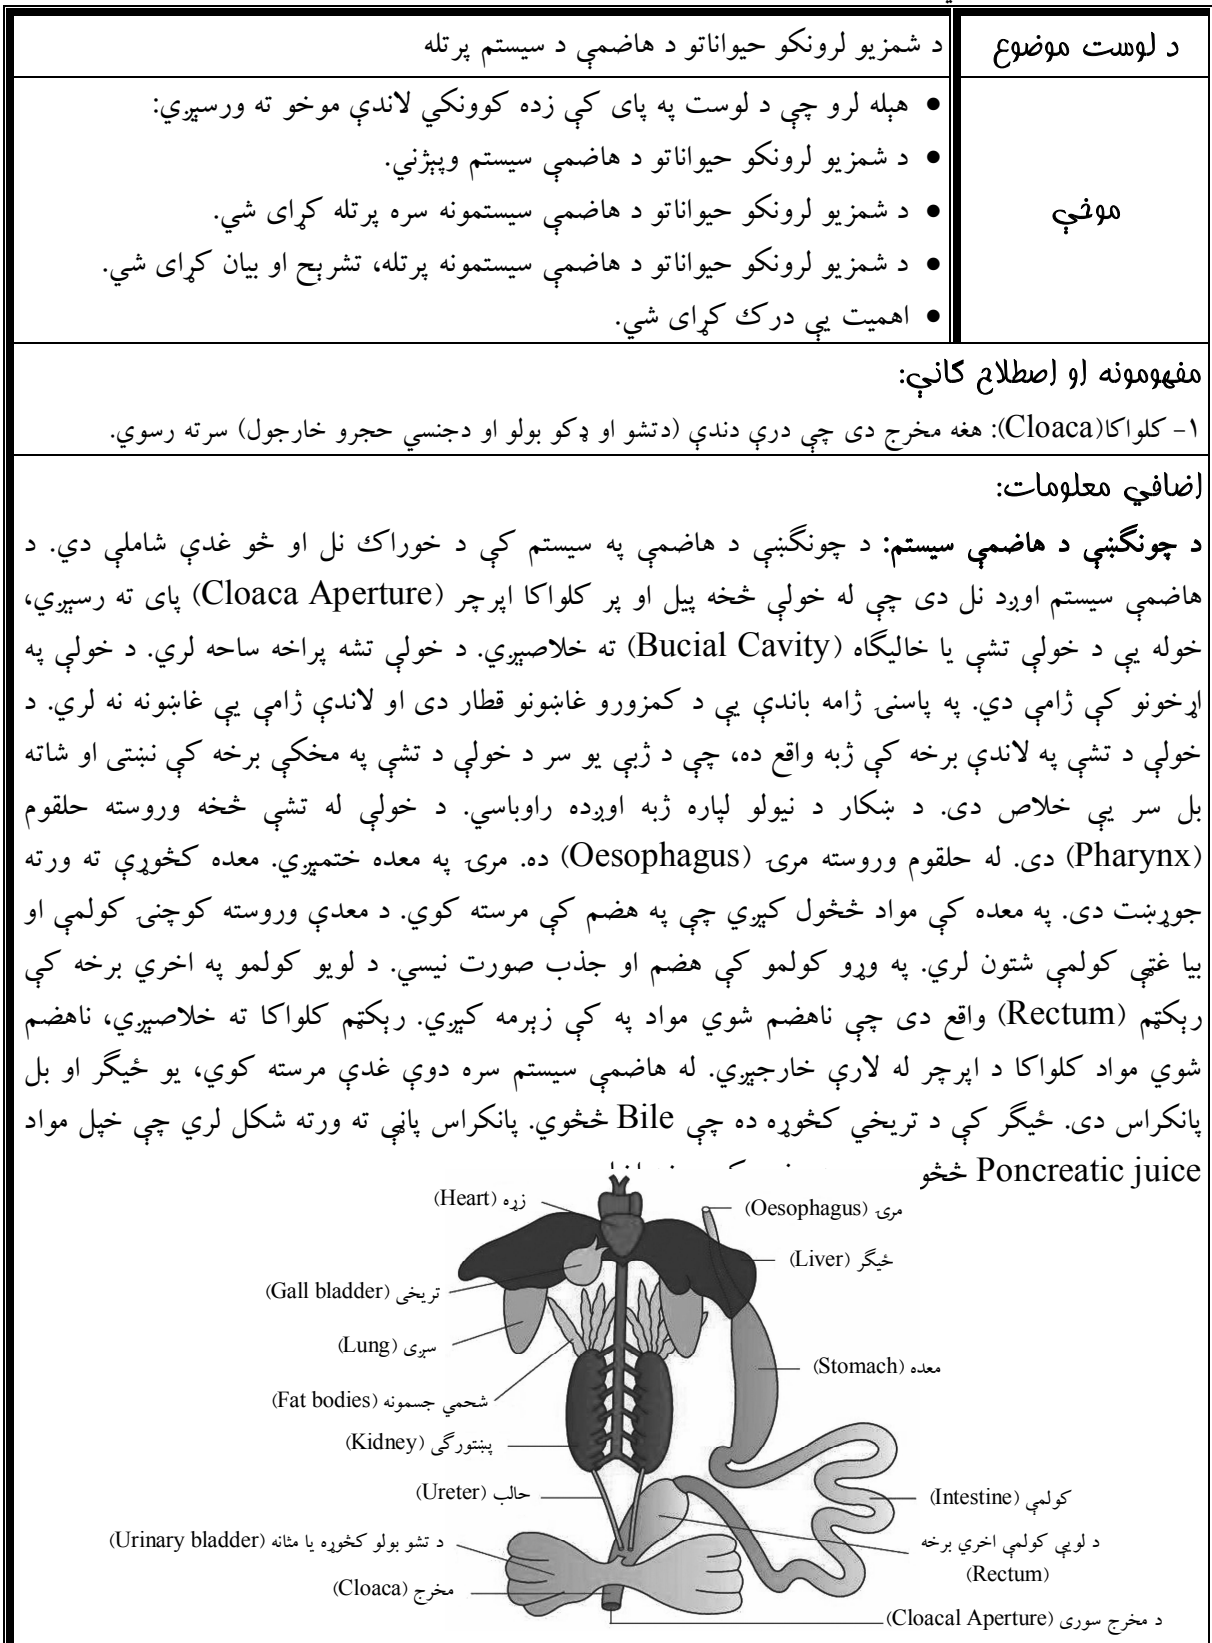 د لوست موضوع
د شمزيو لرونکو حيواناتو د هاضمې د سيستم پرتله
موخې
● هيله لرو چې د لوست په پای کې زده کوونکي لاندې موخو ته ورسېږي:
● د شمزيو لرونکو حيواناتو د هاضمې سيستم وپېژني.
● د شمزيو لرونکو حيواناتو د هاضمې سيستمونه سره پرتله کړای شي.
● د شمزيو لرونکو حيواناتو د هاضمې سيستمونه پرتله، تشرېح او بيان کړای شي.
● اهميت يې درک کړای شي.
مفهومونه او اصطلاح ګانې:
۱- کلواکا(Cloaca): هغه مخرج دی چې درې دندې (دتشو او ډکو بولو او دجنسي حجرو خارجول) سرته رسوي.
اضافي معلومات:
د چونګښې د هاضمې سيستم: د چونګښې د هاضمې په سيستم کې د خوراک نل او څو غدې شاملې دي. د
هاضمې سيستم اوږد نل دی چې له خولې څخه پيل او پر کلواکا اپرچر (Cloaca Aperture) پای ته رسېږي،
خوله يې د خولې تشې يا خاليګاه (Bucial Cavity) ته خلاصېږي. د خولې تشه پراخه ساحه لري. د خولې په
اړخونو کې ژامې دي. په پاسنۍ ژامه باندې يې د کمزورو غاښونو قطار دی او لاندې ژامې يې غاښونه نه لري. د
خولې د تشې په لاندې برخه کې ژبه واقع ده، چې د ژبې يو سر د خولې د تشې په مخکې برخه کې نښتی او شاته
بل سر يې خلاص دی. د ښکار د نيولو لپاره ژبه اوږده راوباسي. د خولې له تشې څخه وروسته حلقوم
(Pharynx) دی. له حلقوم وروسته مرۍ (Oesophagus) ده. مرۍ په معده ختمېږي. معده کڅوړې ته ورته
جوړښت دی. په معده کې مواد څڅول کېږي چې په هضم کې مرسته کوي. د معدې وروسته کوچنۍ کولمې او
بيا غټې کولمې شتون لري. په وړو کولمو کې هضم او جذب صورت نيسي. د لويو کولمو په اخري برخه کې
رېکټم (Rectum) واقع دی چې ناهضم شوي مواد په کې زېرمه کېږي. رېکټم کلواکا ته خلاصېږي، ناهضم
شوي مواد کلواکا د اپرچر له لارې خارجېږي. له هاضمې سيستم سره دوې غدې مرسته کوي، يو ځيګر او بل
پانکراس دی. ځيګر کې د تريخي کڅوړه ده چې Bile څڅوي. پانکراس پاڼې ته ورته شکل لري چې خپل مواد
Poncreatic juice څڅو
زړه (Heart)
مرۍ (Oesophagus)
ځيګر (Liver)
تريخی (Gall bladder)
سږی (Lung)
معده (Stomach)
شحمي جسمونه (Fat bodies)
پښتورګی (Kidney)
حالب (Ureter)
کولمې (Intestine)
د تشو بولو کڅوړه يا مثانه (Urinary bladder)
د لويې کولمې اخري برخه
(Rectum)
مخرج (Cloaca)
د مخرج سوری (Cloacal Aperture)